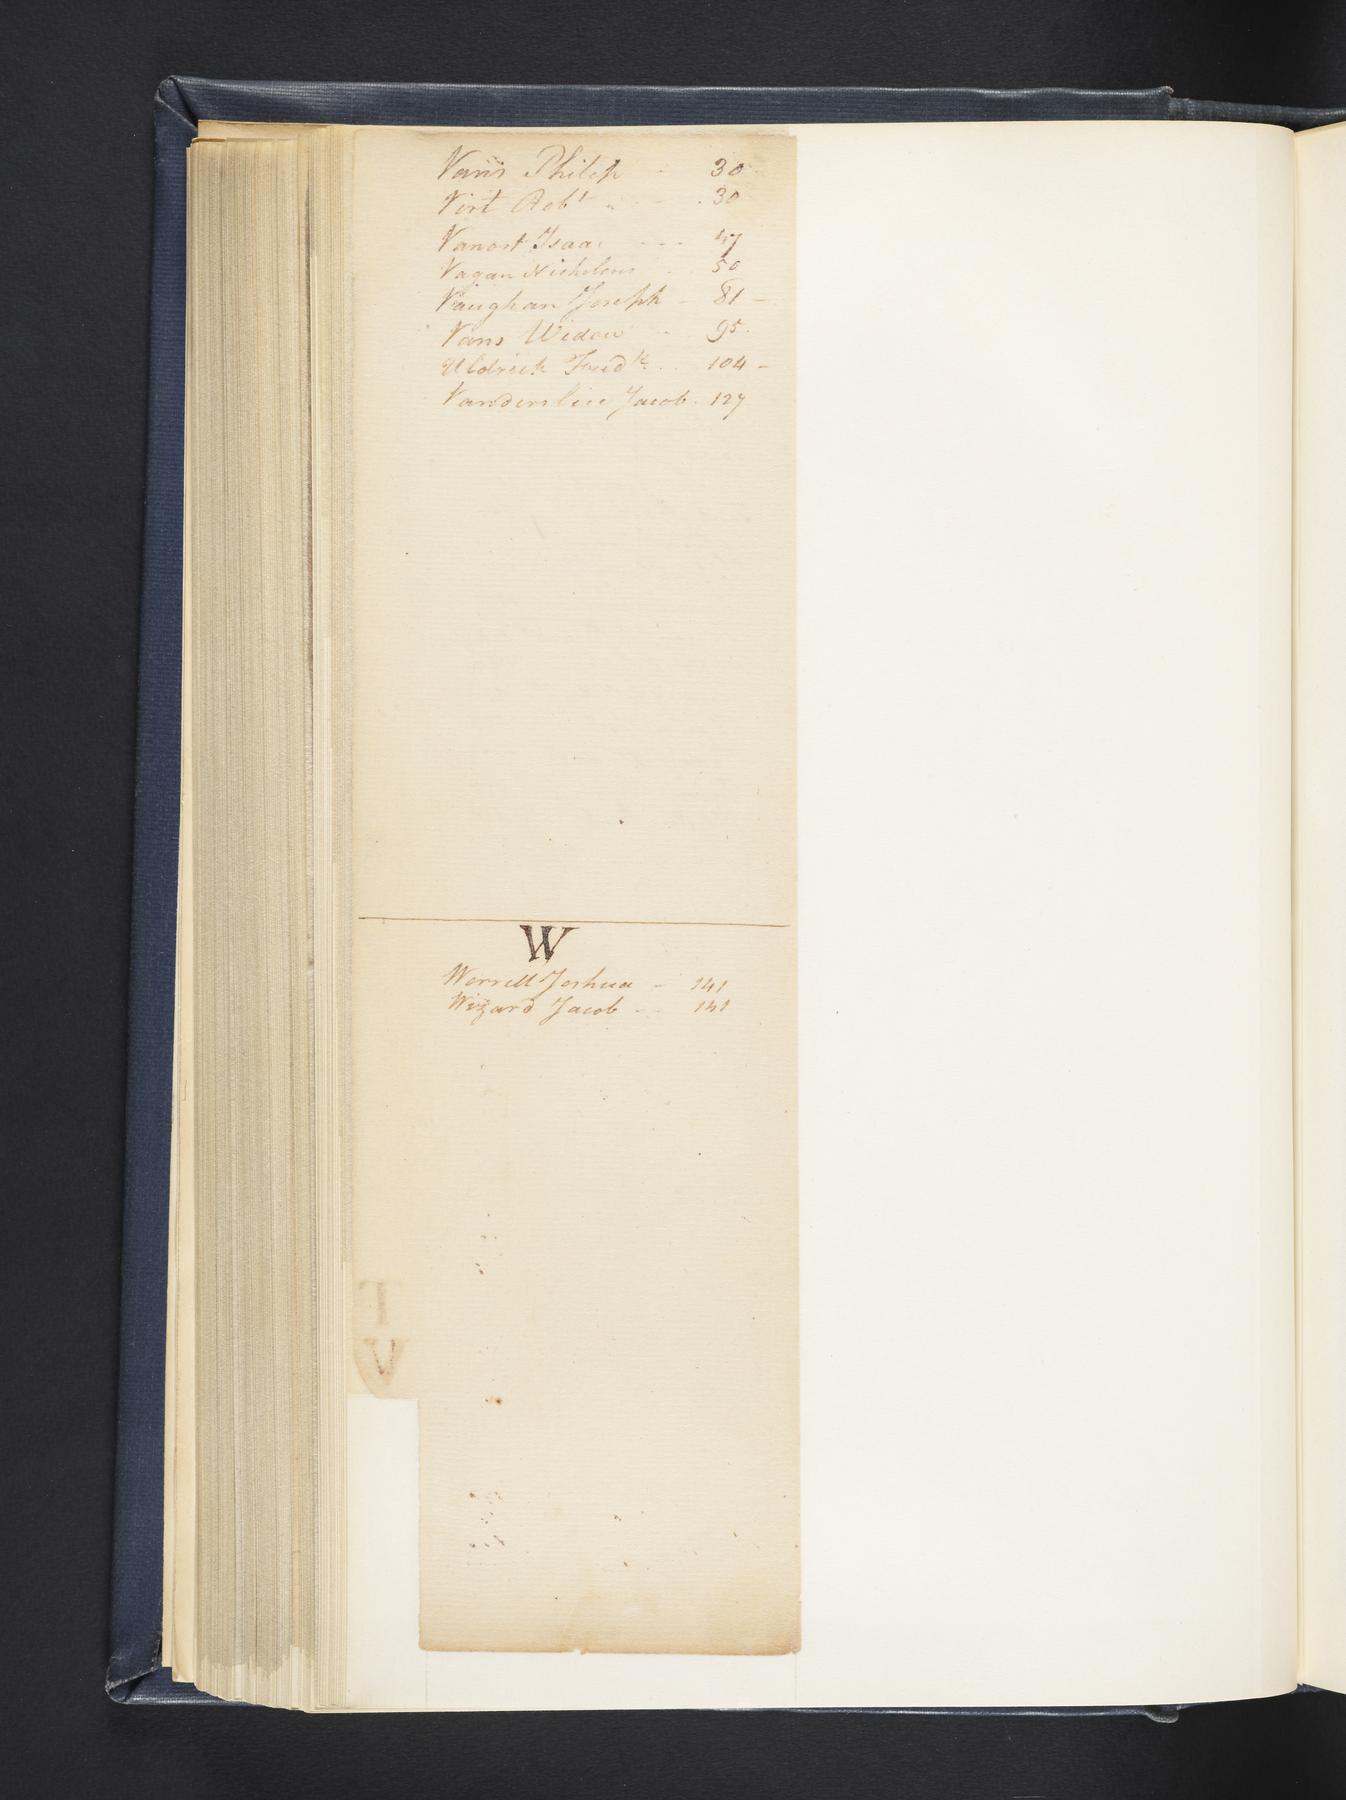 Vans Philip - 30
Virt Robt - 30
Vanost Isaac --- 47
Vagan Nicholous - 50
Vaughan Joseph - 81 -
Vans Widow - 95.
Uldrick Fredk .. 104 -
Vanderslice Jacob. 127
W
Worrell Joshua - 141
Wizard Jacob -- 141
T
V